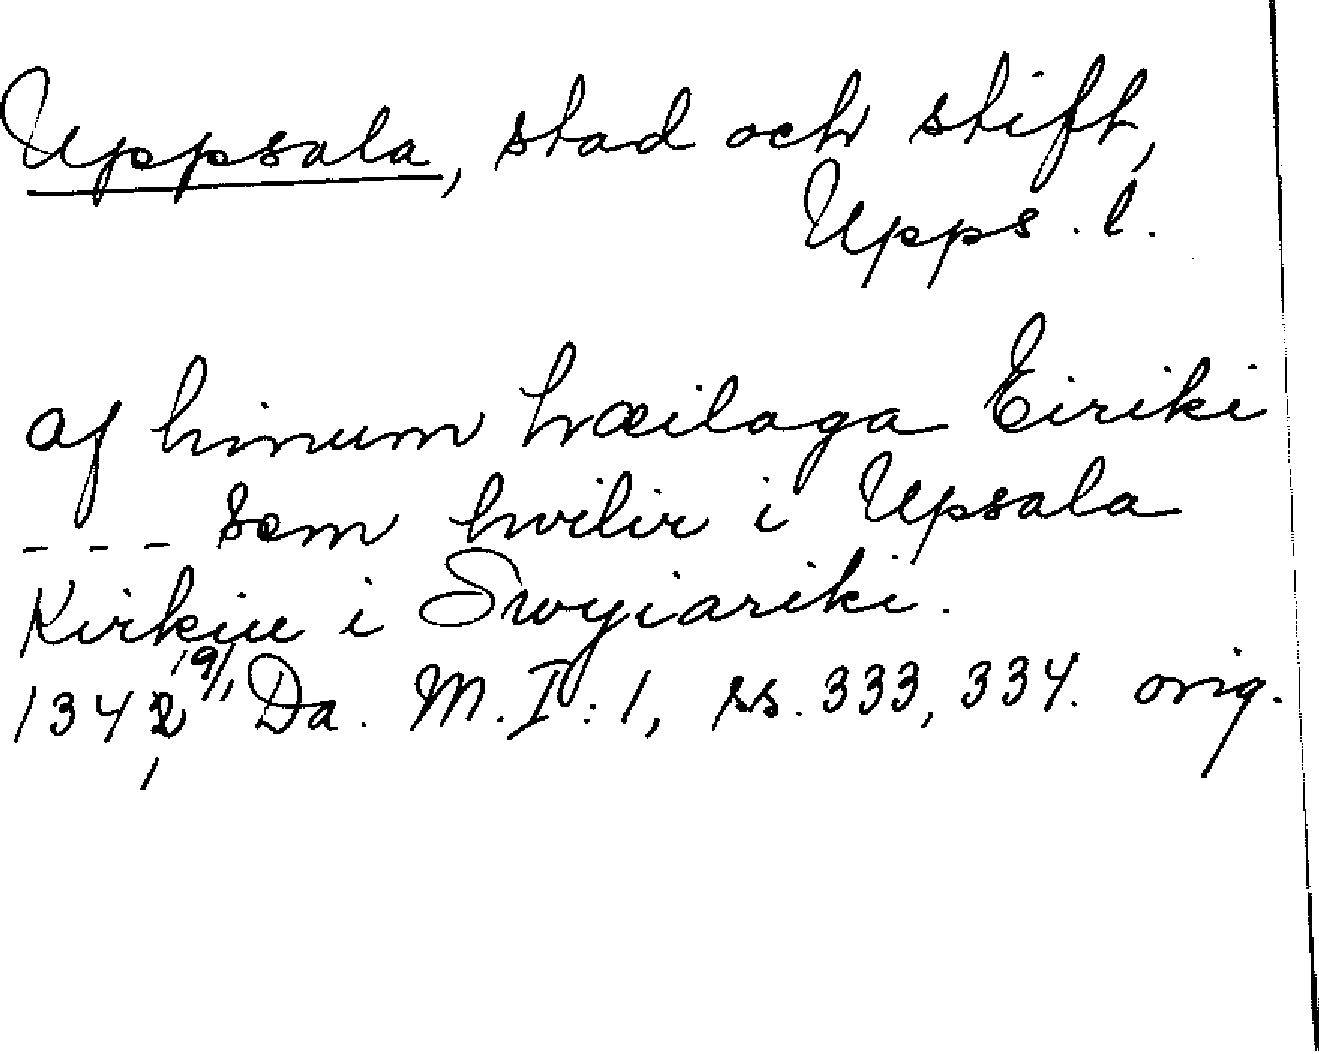 Uppsala, stad och stift,
Upps. l.
af hinum hæilaga Eiriki
- - - sem hvilir i Upsala
Kirkiu i Swyiariki.
1342 19/1 Da. M. I:1, ss. 333, 334. orig.